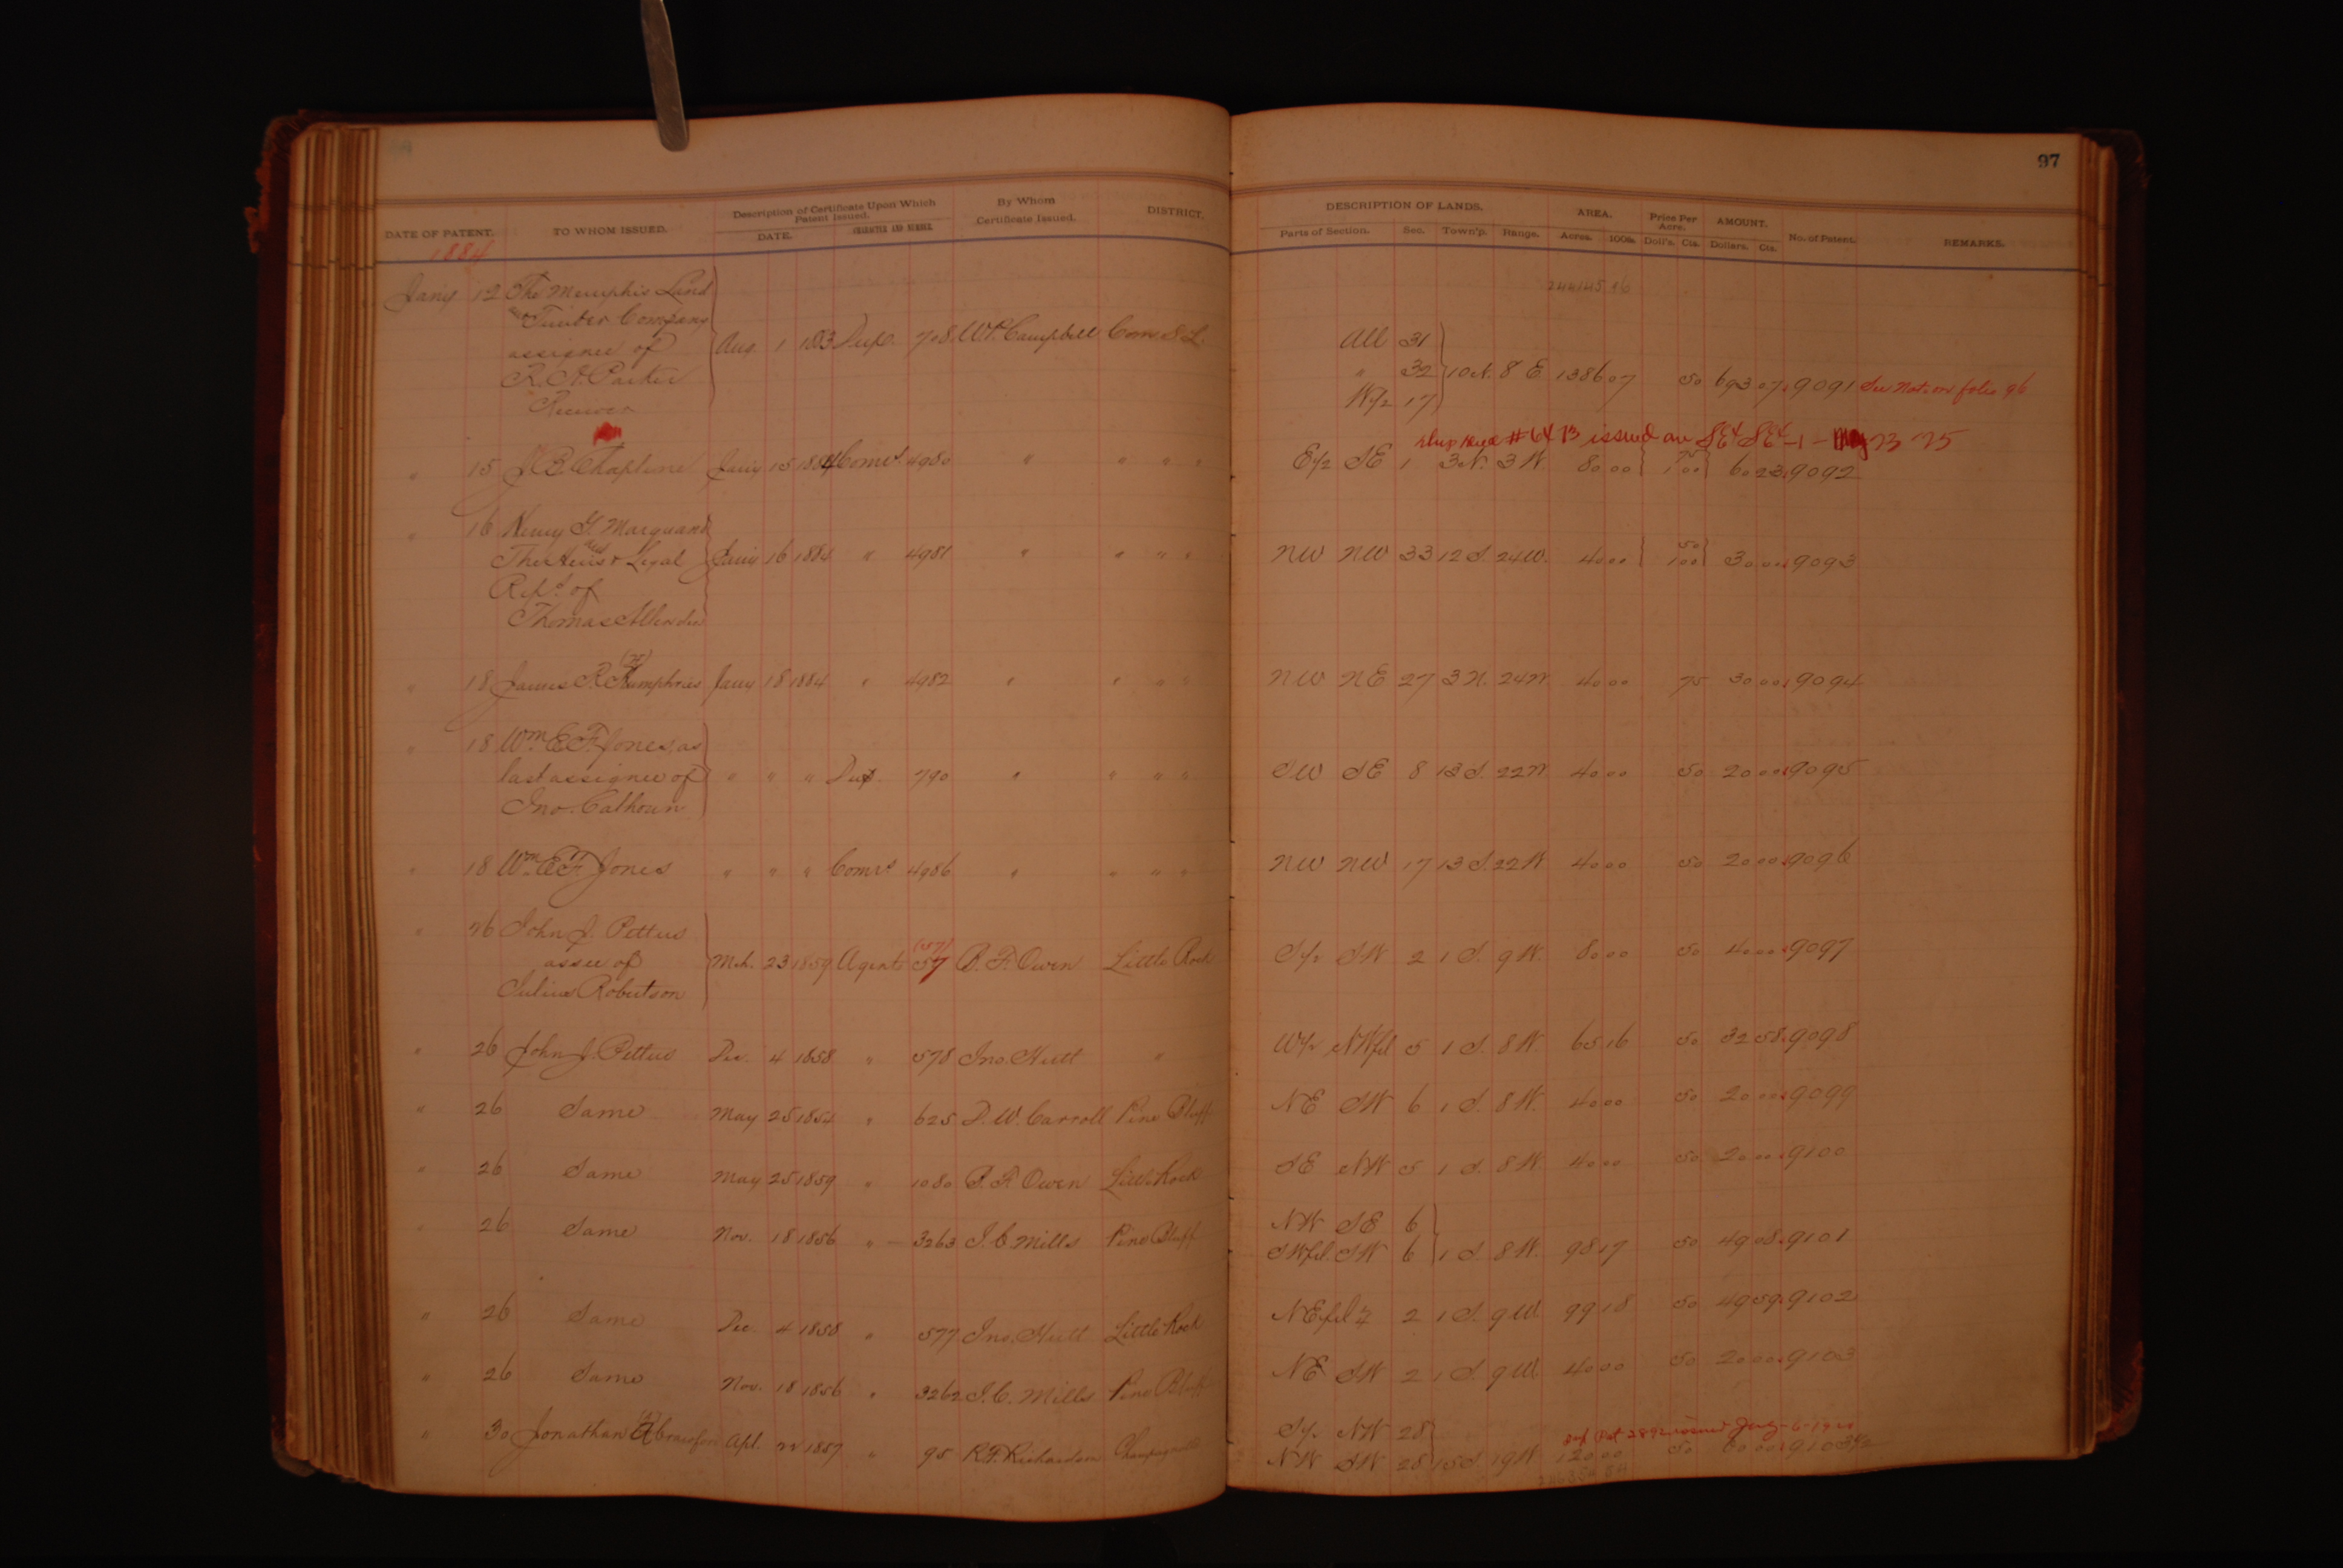 97
DATE OF PATENT. TO WHOM ISSUED. Description of Certificate Upon Which Patent Issued. DATE. CHARACTER AND NUMBER. By Whom Certificate Issued. DISTRICT. DESCRIPTION OF LANDS. Parts of Section. Sec. Town'p. Range. AREA. Acres. 100ths. Price Per Acre. Doll's. Cts. AMOUNT. Dollars. Cts. No. of Patent. REMARKS.
1884
Jany 12 The Memphis Land
and Timber Company
assignee of Aug. 1 1883 Dup. 708 W.P. Campbell Com S.L. All 31
R. A. Parker " 32 10 N. 8 E 1386 07 50 693 07 9091 See note on folio 96
Receiver W/2 17
issued on SE4 SE4-1
" 15 J. E. Chapline Jany 15 1884 Comrs 4980 " " " " E/2 SE 1 3 N. 3 W 80 00 75 1 00 60 23 9092
" 16 Henry G. Marquand
and The Heirs & Legal Jany 16 1884 " 4981 " " " " NW NW 33 12 S. 24 W. 40 00 50 1 00 30 00 9093
Reps. of
Thomas Allen
" 18 James R. (H) Humphries Jany 18 1884 " 4982 " " " " NW NE 27 3 N. 24 W 40 00 75 30 00 9094
" 18 Wm. E. F. Jones, as
last assignee of " " " Dup. 790 " " " " SW SE 8 13 S. 22 W 40 00 50 20 00 9095
Jno. Calhoun
" 18 Wm. E. F. Jones " " " Comrs 4986 " " " " NW NW 17 13 S. 22 W. 40 00 50 20 00 9096
" 26 John J. Pettus
assee of Mch. 23 1859 Agent (57) 57 B. F. Owen Little Rock S/2 SW 2 1 S. 9 W. 80 00 50 40 00 9097
Julius Robertson
" 26 John J. Pettus Dec. 4 1858 " 578 Jno. Hutt " W/2 NW frl 5 1 S. 8 W. 65 16 50 32 58 9098
" 26 Same May 25 1854 " 625 D. W. Carroll Pine Bluff NE SW 6 1 S. 8 W. 40 00 50 20 00 9099
" 26 Same May 25 1859 " 1080 B. F. Owen Little Rock SE NW 5 1 S. 8 W. 40 00 50 20 00 9100
NW SE 6
" 26 Same Nov. 18 1856 " 3263 I. C. Mills Pine Bluff SW frl. SW 6 1 S. 8 W. 98 17 50 49 08 9101
" 26 Same Dec. 4 1858 " 577 Jno. Hutt Little Rock NE frl 4 2 1 S. 9 W. 99 18 50 49 59 9102
" 26 Same Nov. 18 1856 " 3262 I. C. Mills Pine Bluff NE SW 2 1 S. 9 W. 40 00 50 20 00 9103
S/2 NW 28
" 30 Jonathan Apl. 22 1857 " 95 R. F. Richardson NW SW 28 15 S 19 W 120 00 50 60 00 9103 1/2